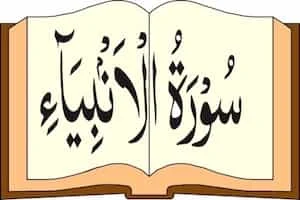 سُورَةُ الْاَنْبِيَآءِ